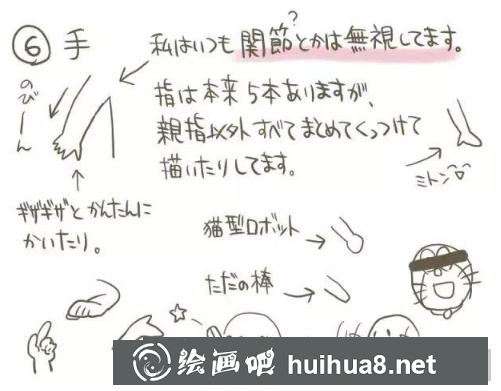 ⑥ 手
私はいつも関節とかは無視してます。
?
のびーん
指は本来5本ありますが、
親指以外すべてまとめてくっつけて
描いたりしてます。
ミトン
ギザギザとかんたんに
かいたり。
猫型ロボット
ただの棒
绘画吧 huihua8.net